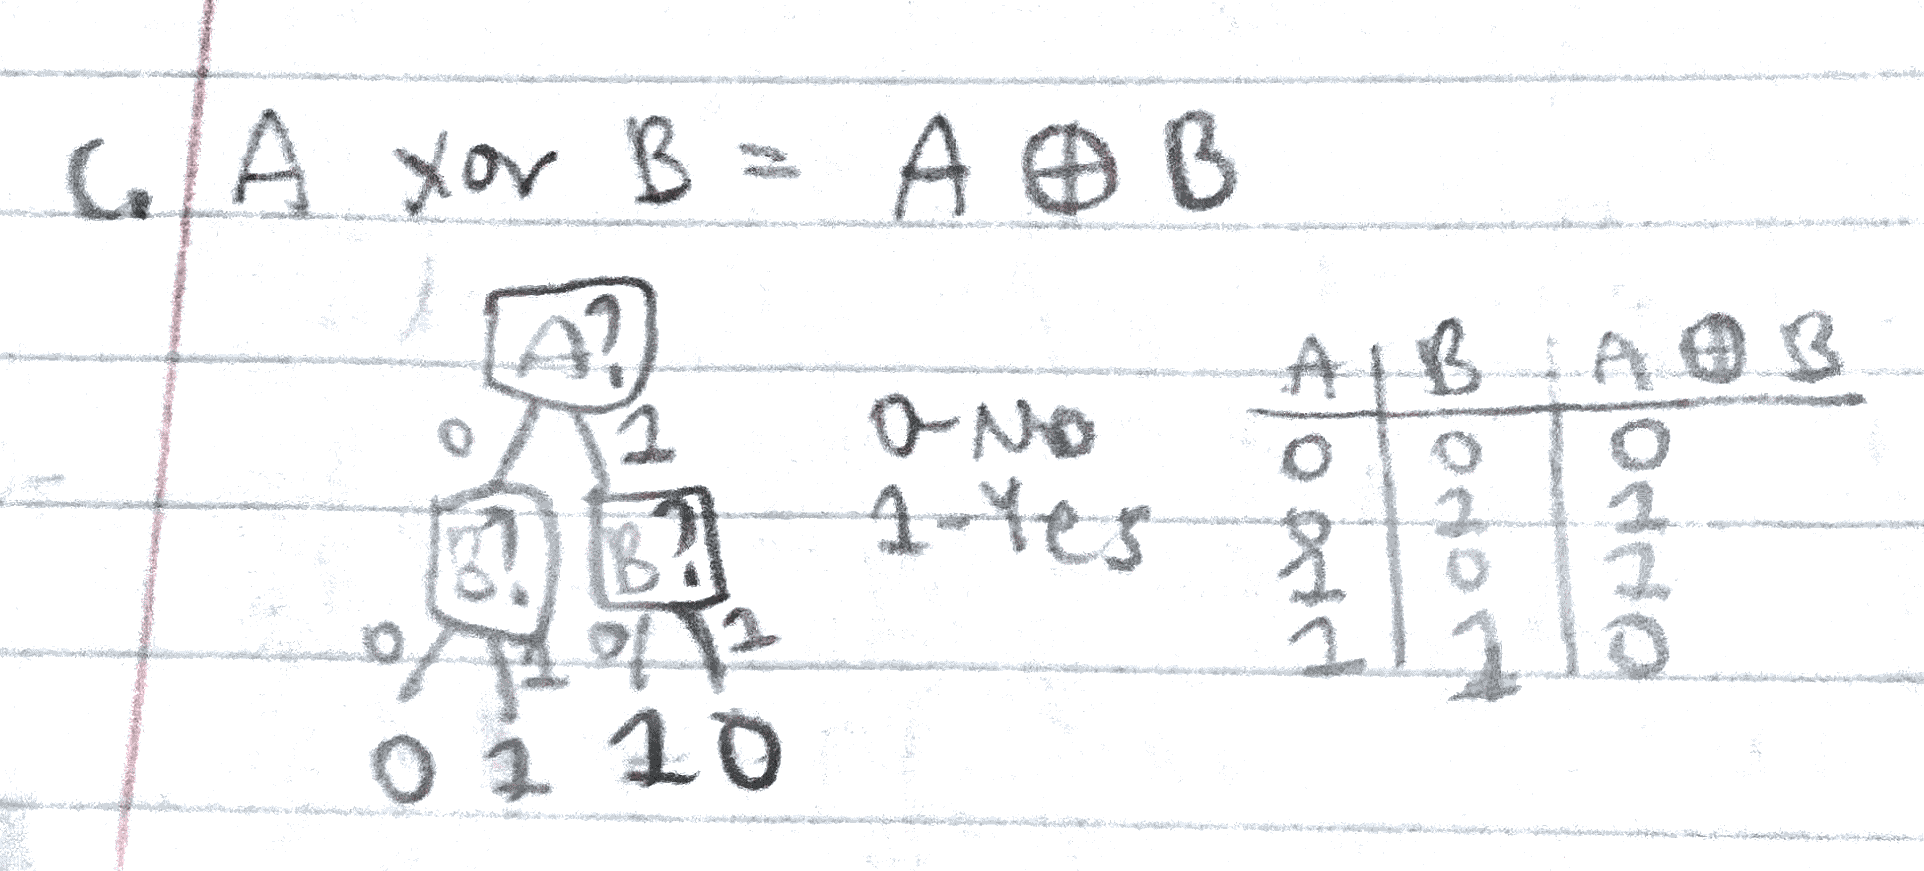 C. A xor B = A ⊕ B
A?
0 1
B? B?
0 1 0 1
0 1 1 0
0-No
1-Yes
A B A ⊕ B
0 0 0
0 1 1
1 0 1
1 1 0